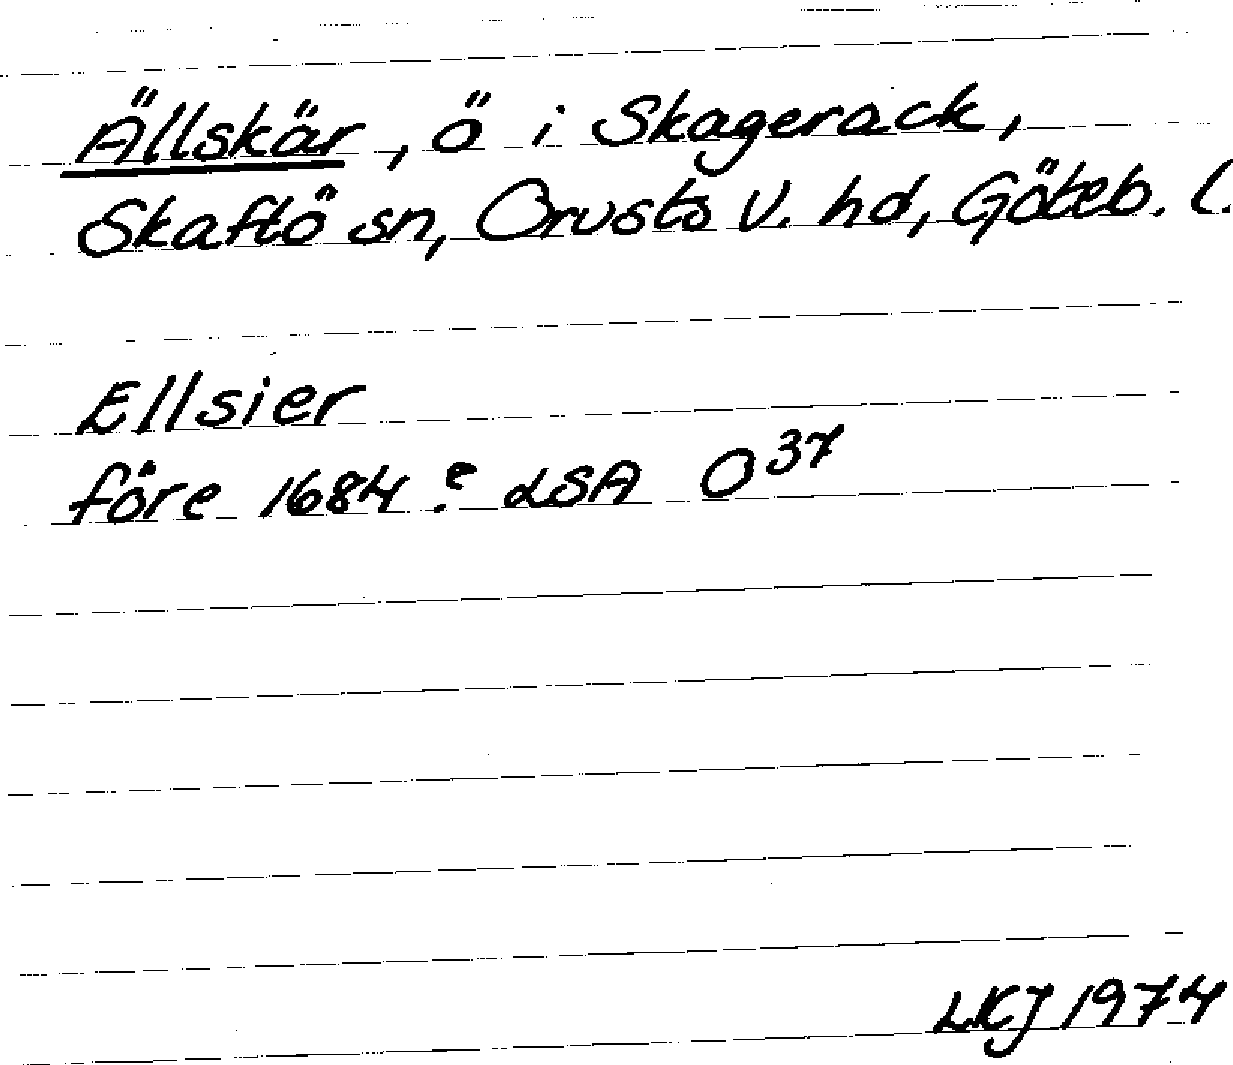 Ällskär, ö i Skagerack,
Skaftö sn, Orusts V. hd, Göteb. l.
Ellsier
före 1684? LSA O³⁷
LKJ 1974